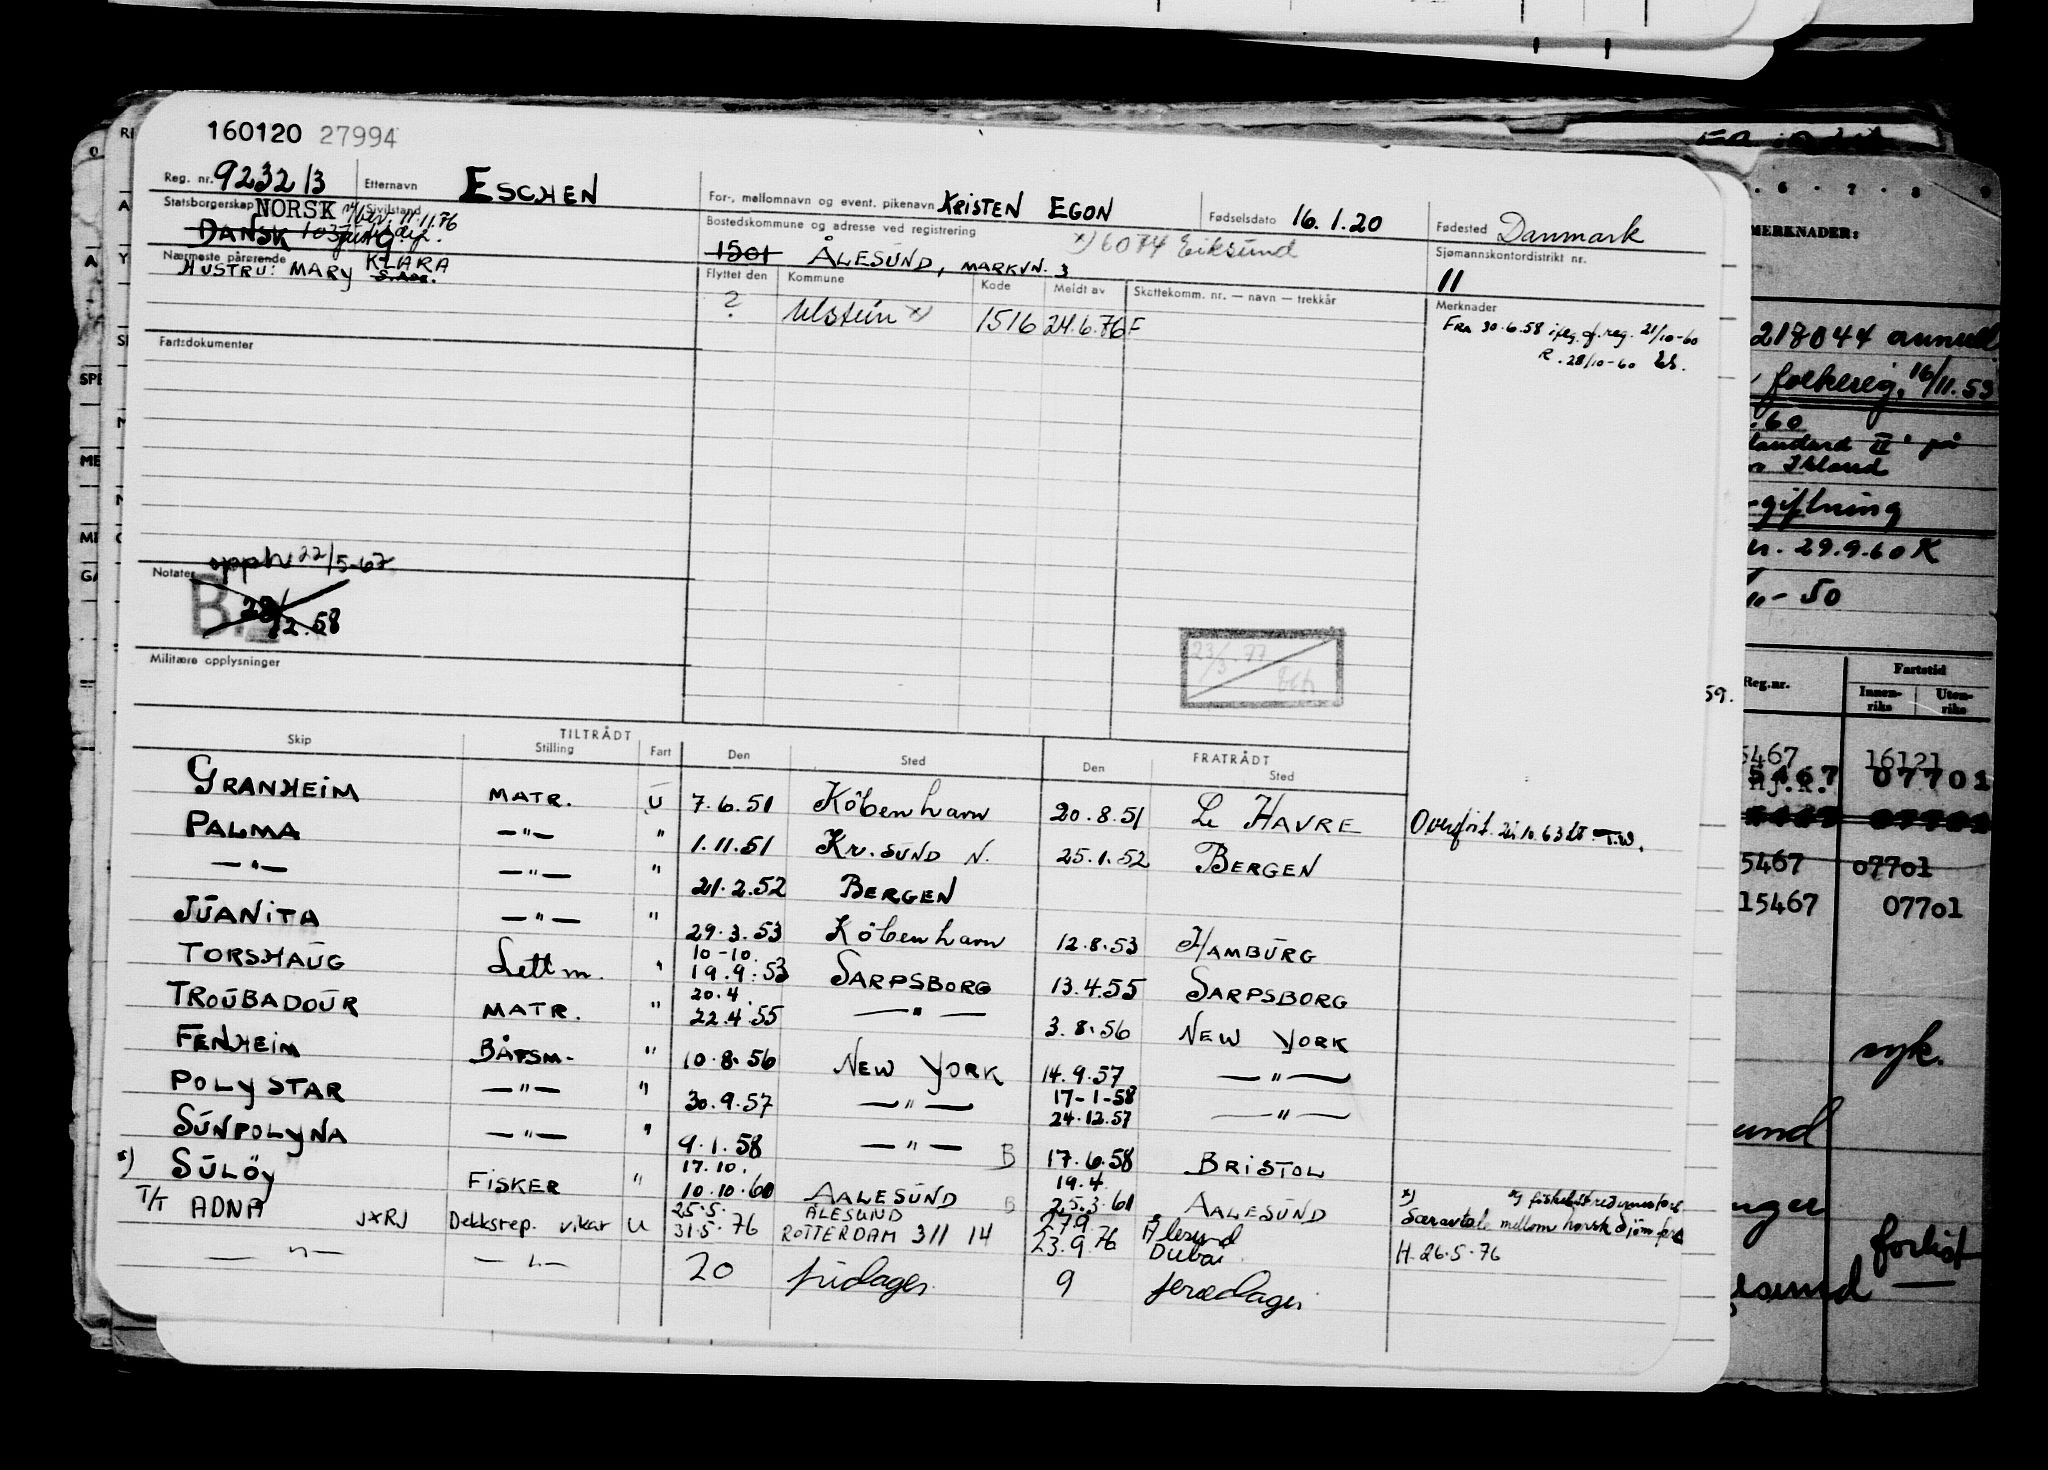 160120 27994
Reg. nr. 9232/3 Etternavn ESCHEN For-, mellomnavn og event. pikenavn KRISTEN EGON Fødselsdato 16.1.20 Fødested Danmark
Statsborgerskap NORSK Sivilstand 11.11.76
DANSK GIFT
Bostedskommune og adresse ved registrering x) 6074 Eiksund
1501 ÅLESUND, MARKVN. 3
Sjømannskontordistrikt nr. 11
Nærmeste pårørende KLARA
HUSTRU: MARY
Flyttet den Kommune Kode Meldt av Skattekomm. nr. — navn — trekkår Merknader
? Ulstein x) 1516 24.6.76 F
FRA 30.6.58 reg. 21/10-60
R. 28/10-60
Fartsdokumenter
opph 22/5-67
Notater
B. 28/2.58
23/3.77
Militære opplysninger
TILTRÅDT FRATRÅDT
Skip Stilling Fart Den Sted Den Sted
GRANHEIM MATR. U 7.6.51 Köbenhavn 20.8.51 Le HAVRE Overfört 21.10.63 T.W.
PALMA —"— " 1.11.51 Kr.SUND N. 25.1.52 BERGEN
—"— —"— " 21.2.52 BERGEN
JUANITA —"— " 29.3.53 Köbenhavn 12.8.53 HAMBURG
10-10.
TORSHAUG Lettm. " 19.9.53 SARPSBORG 13.4.55 SARPSBORG
20.4.
TROUBADOUR MATR. " 22.4.55 —"— 3.8.56 NEW YORK
FENHEIM BÅTSM. " 10.8.56 NEW YORK 14.9.57 —"—
17-1-58
POLYSTAR —"— " 30.9.57 —"— 24.12.57 —"—
SUNPOLYNA —"— " 9.1.58 —"— B 17.6.58 BRISTOL
17.10. 19.4.
x) SULÖY FISKER " 10.10.60 AALESUND B 25.3.61 AALESUND
25.5. ÅLESUND 27.9 Ålesund
T/T ADNA JXRJ Dekksrep. vikar U 31.5.76 ROTTERDAM 311 14 23.9.76 Dubai
x) Særavtale mellom norsk sjöm.
H. 26.5.76
—"— —"— 20 fridager 9 feriedager
MERKNADER:
218044
folkereg. 16/11.53
.60
Island
giftning
29.9.60 K
- 50
59.
Reg.nr. Fartstid
Innenriks Utenriks
5467 16121
5467 07701
5467 07701
15467 07701
syk.
und
forlist
—